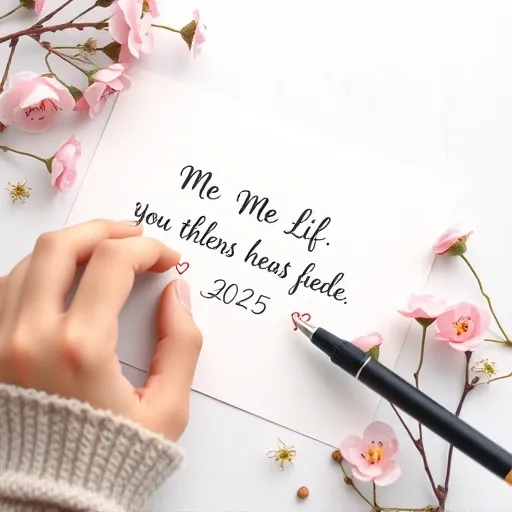 Me Me Lif.
you thlens heas fiede.
2025